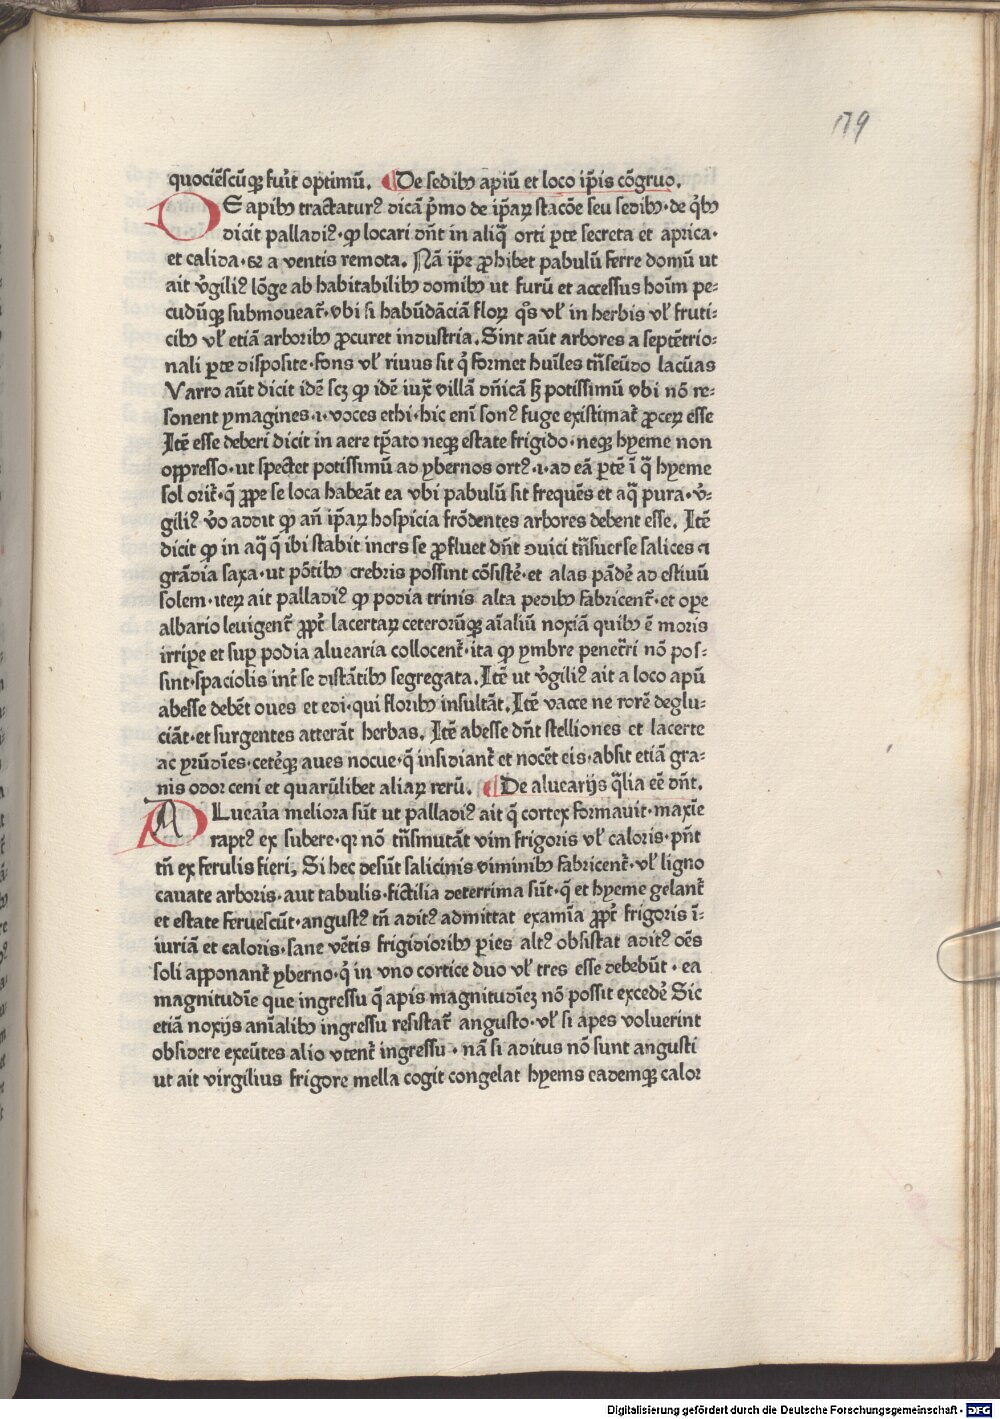 179
quociēscūqꝫ fuīt optimū. De sedibꝫ apiū et loco ip̄is cōgruo.
DE apibꝫ tractaturꝰ dicā p̄mo de ip̄aꝝ stacōe seu sedibꝫ· de q̄bꝫ
dicit palladiꝰ· ꝙ locari dn̄t in aliq̄ orti ꝑte secreta et aprica·
et calida· et a ventis remota. Nā ip̄e ꝓhibet pabulū ferre domū ut
ait v̄giliꝰ lōge ab habitabilibꝫ domibꝫ ut furū et accessus hoīm pe⸗
cudūqꝫ submoueat᷑· vbi si habūdāciā floꝝ qᷦs vl̓ in herbis vl̓ fruti⸗
cibꝫ vl̓ etiā arboribꝫ ꝓcuret industria. Sint aūt arbores a septētrio⸗
nali ꝑte disposite· fons vl̓ riuus sit q̇ formet huīles trn̄seūdo lacūas
Varro aūt dicit idē scꝫ ꝙ idē iuxͣ villā dn̄icā sꝫ potissimū vbi nō re⸗
sonent ymagines ·i· voces ethi· hic enī sonꝰ fuge existimat᷑ ꝓceꝝ esse
Itē esse deberi dicit in aere tp̄ato neqꝫ estate frigido· neqꝫ hyeme non
oppresso· ut spectet potissimū ad ybernos ortꝰ ·i· ad eā ꝑtē ī q̄ hyeme
sol orit᷑· q̄ ꝓpe se loca habeāt ea vbi pabulū sit frequēs et aq̄ pura· v̄⸗
giliꝰ v̄o addit ꝙ an̄ ip̄aꝝ hospicia frōdentes arbores debent esse. Itē
dicit ꝙ in aq̄ q̄ ibi stabit iners se ꝓfluet dn̄t duici trn̄suerse salices ⁊
grādia saxa· ut pōtibꝫ crebris possint cōsistē· et alas pādē ad estiuū
solem· iteꝝ ait palladiꝰ ꝙ podia trinis alta pedibꝫ fabricent᷑· et ope
albario leuigent᷑ ꝓpt᷑ lacertaꝝ ceterorūqꝫ aīaliū noxiā quibꝫ ē moris
irriꝑe et suꝑ podia aluearia collocent᷑· ita ꝙ ymbre penet᷑ri nō pos⸗
sint· spaciolis int᷑ se distātibꝫ segregata. Itē ut v̄giliꝰ ait a loco apū
abesse debēt oues et edi· qui floribꝫ insultāt. Itē vacce ne rorē deglu⸗
ciāt· et surgentes atterāt herbas. Itē abesse dn̄t stelliones et lacerte
ac yrūdīes· cetēqꝫ aues nocue· q̄ insidiant᷑ et nocēt eis· absit etiā gra⸗
nis odor ceni et quarūlibet aliaꝝ rerū. De aluearijs q̄lia eē dn̄t.
ALueaīa meliora sūt ut palladiꝰ ait q̄ cortex formauit· maxīe
raptꝰ ex subere· qꝛ nō trn̄smutāt vim frigoris vl̓ caloris· pn̄t
tn̄ ex ferulis fieri, Si hec desūt salicinis viminibꝫ fabricent᷑· vl̓ ligno
cauate arboris· aut tabulis· fictilia deterrima sūt· q̄ et hyeme gelant᷑
et estate feruescūt· angustꝰ tn̄ aditꝰ admittat examīa ꝓpt᷑ frigoris ī⸗
iuriā et caloris· sane vētis frigidioribꝫ ꝑies altꝰ obsistat aditꝰ oēs
soli apponant᷑ yberno· q̇ in vno cortice duo vl̓ tres esse debebūt· ea
magnitudīe que ingressu q̄ apis magnitudīeꝫ nō possit excedē Sic
etiā noxijs anīalibꝫ ingressu resistat᷑ angusto· vl̓ si apes voluerint
obsidere exeūtes alio vtent᷑ ingressu· nā si aditus nō sunt angusti
ut ait virgilius frigore mella cogit congelat hyems eademqꝫ calor
Digitalisierung gefördert durch die Deutsche Forschungsgemeinschaft - DFG